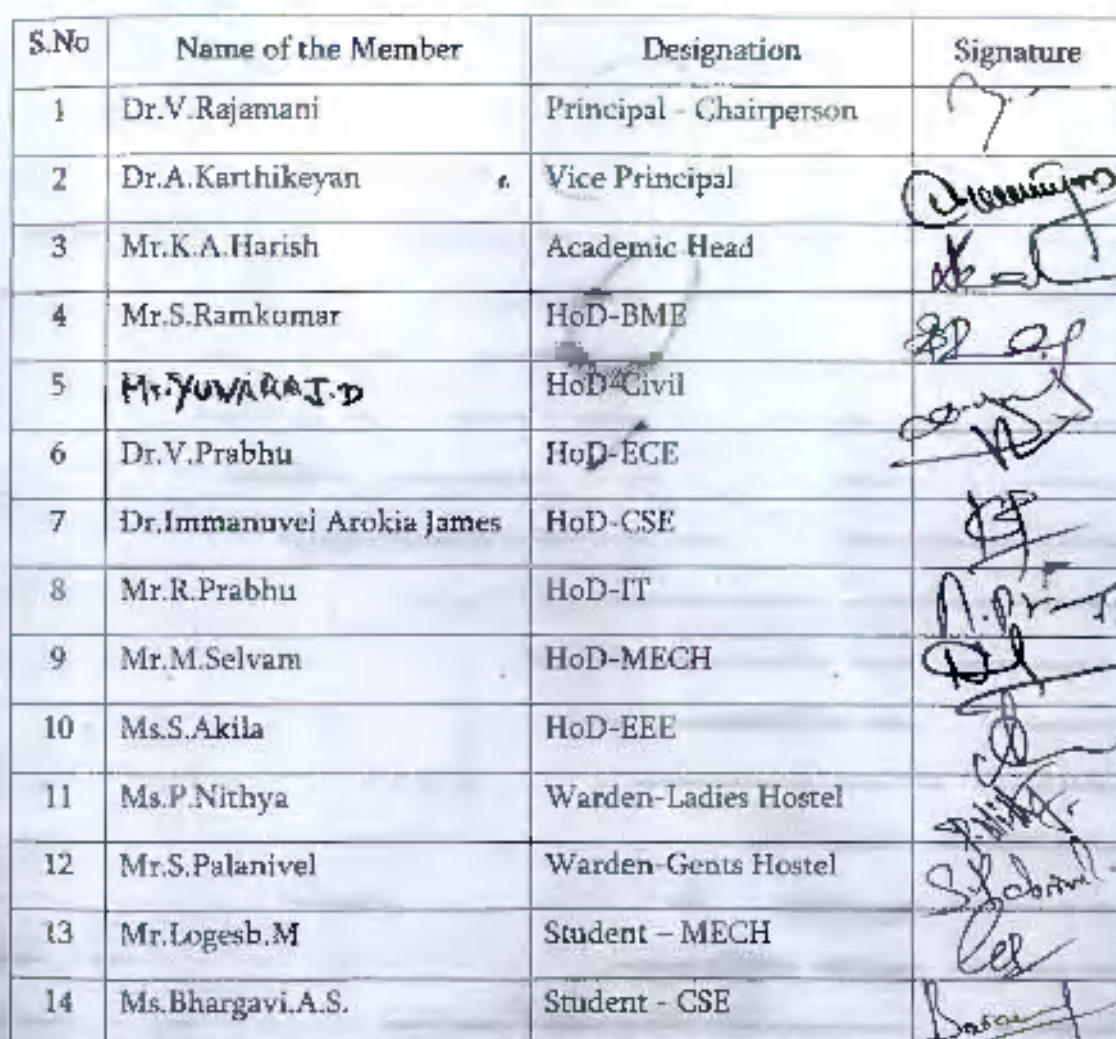 S.No Name of the Member Designation Signature
1 Dr.V.Rajamani Principal - Chairperson
2 Dr.A.Karthikeyan Vice Principal
3 Mr.K.A.Harish Academic Head
4 Mr.S.Ramkumar HoD-BME
5 Mr.YUVARAJ.D HoD-Civil
6 Dr.V.Prabhu HoD-ECE
7 Dr.Immanuvel Arokia James HoD-CSE
8 Mr.R.Prabhu HoD-IT
9 Mr.M.Selvam HoD-MECH
10 Ms.S.Akila HoD-EEE
11 Ms.P.Nithya Warden-Ladies Hostel
12 Mr.S.Palanivel Warden-Gents Hostel
13 Mr.Logesh.M Student – MECH
14 Ms.Bhargavi.A.S. Student - CSE